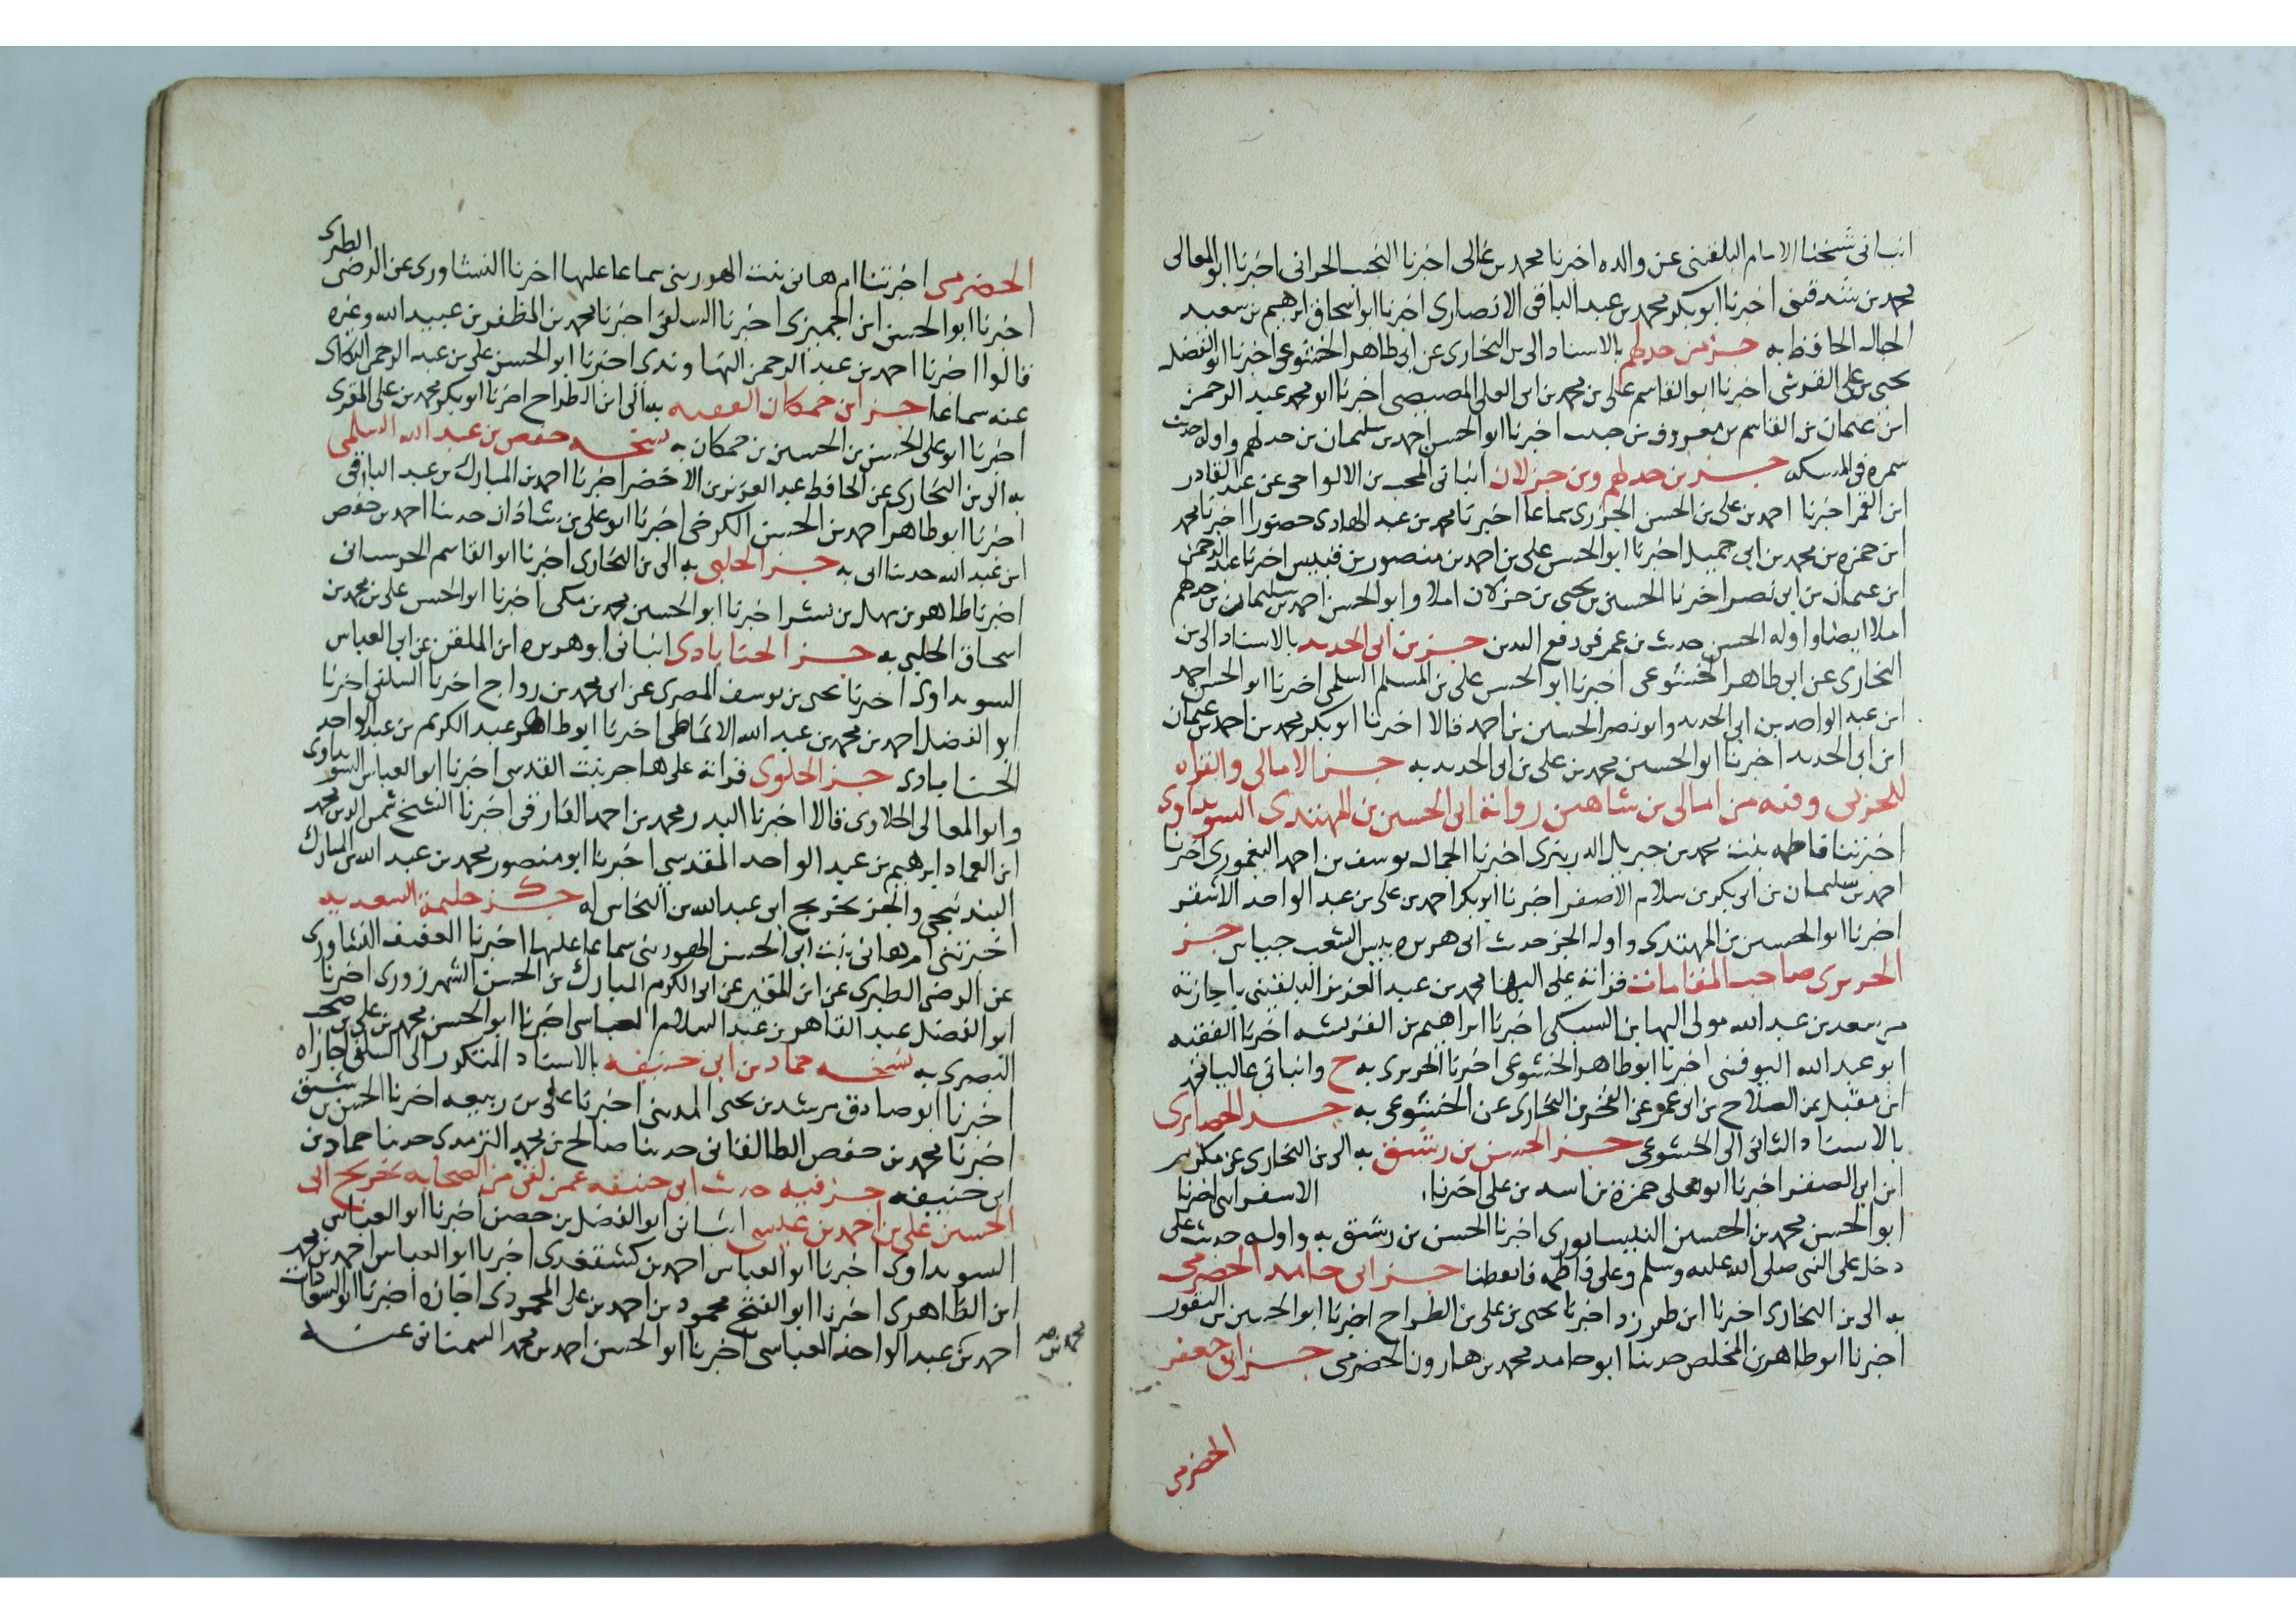 انبانى شيخنا الامام البلقينى عن والده اخبرنا محمد بن غالى اخبرنا النجيب الحرانى اخبرنا ابو المعالى
محمد بن اخبرنا ابو بكر محمد بن عبد الباقى الانصارى اخبرنا ابو اسحاق ابرهيم بن سعيد
الحبال الحافظ به جز بن حدلم بالاسناد الى بن البخارى عن ابى طاهر الخشوعى اخبرنا ابو الفضل
يحيى بن على القرشى اخبرنا ابو القاسم على بن محمد بن ابى العلى المصيصى اخبرنا ابو محمد عبد الرحمن
ابن عثمان بن القاسم بن معروف بن حبيب اخبرنا ابو الحسن احمد بن سليمان بن حدلم واوله حديث
سمره فى جز بن حدلم وبن جزلان انبانى المحب بن الالواحى عن عبد القادر
ابن القمر اخبرنا احمد بن على بن الحسن الجزرى سماعا اخبرنا محمد بن عبد الهادى حضورا اخبرنا محمد
ابن حمزه بن محمد بن ابى جميل اخبرنا ابو الحسن على بن احمد بن منصور بن قبيس اخبرنا عبد الرحمن
ابن عثمان بن ابى نصر اخبرنا الحسين بن يحيى بن جزلان املا وابو الحسن احمد بن سليمان بن حدلم
املا ايضا واوله الحسن حديث بن عمر فى رفع اليدين جز بن ابى الحديد بالاسناد الى بن
البخارى عن ابى طاهر الخشوعى اخبرنا ابو الحسن على بن المسلم السلمى اخبرنا ابو الحسن احمد
ابن عبد الواحد بن ابى الحديد وابو نصر الحسين بن احمد قالا اخبرنا ابو بكر محمد بن احمد بن عثمان
ابن ابى الحديد اخبرنا ابو الحسين محمد بن على بن ابى الحديد به جز الامالى والقراه
وفيه من امالى بن شاهين رواية ابى الحسين بن المهتدى السويداوى
اخبرتنا فاطمه بنت محمد بن جبريل الدربندى اخبرنا الجمال يوسف بن احمد اليغمورى اخبرنا
احمد بن سليمان بن ابى بكر بن سلام الاصفر اخبرنا ابو بكر احمد بن على بن عبد الواحد الاشقر
اخبرنا ابو الحسين بن المهتدى واوله الجز حديث ابى هريره جز
الحريرى صاحب المقامات قراته على البها محمد بن عبد العزيز البلقينى باجازته
من سعد بن عبد الله مولى البها بن السبكى اخبرنا ابراهيم بن القريشه اخبرنا الفقيه
ابو عبد الله اليونينى اخبرنا ابو طاهر الخشوعى اخبرنا الحريرى به ح وانبانى عاليا محمد
ابن مقبل عن الصلاح بن ابى عمر عن الفخر بن البخارى عن الخشوعى به جز الحصايرى
بالاسناد الثانى الى الخشوعى جز الحسن بن رشيق به الى بن البخارى عن مكرم
ابن ابى الصقر اخبرنا ابو يعلى حمزة بن اسد بن على اخبرنا الاسفراينى اخبرنا
ابو الحسن محمد بن الحسين النيسابورى اخبرنا الحسن بن رشيق به واوله حديث على
دخل على النبى صلى الله عليه وسلم وعلى فاطمه فايقظنا جز ابى حامد الحضرمى
به الى بن البخارى اخبرنا ابن طبرزد اخبرنا يحيى بن على بن الطراح اخبرنا ابو الحسين بن النقور
اخبرنا ابو طاهر بن المخلص حدثنا ابو حامد محمد بن هارون الحضرمى جز ابى جعفر
الحضرمى
الحضرمى اخبرتنا ام هانى بنت الهورينى سماعا عليها اخبرنا النشاورى عن الرضى الطبرى
اخبرنا ابو الحسن ابن الجميزى اخبرنا السلفى اخبرنا محمد بن المظفر بن عبيد الله وغيره
قالوا اخبرنا احمد بن عبد الرحمن النهاوندى اخبرنا ابو الحسن على بن عبد الرحمن البكاى
عنه سماعا جز ابن حمكان الفقيه به الى ابن الطراح اخبرنا ابو بكر محمد بن على المقرى
اخبرنا ابو على الحسن بن الحسين بن حمكان به نسخه حفص بن عبد الله السلمى
به الى بن البخارى عن الحافظ عبد العزيز بن الاخضر اخبرنا احمد بن المبارك بن عبد الباقى
اخبرنا ابو طاهر احمد بن الحسن الكرخى اخبرنا ابو على بن شاذان حدثنا احمد بن حفص
ابن عبد الله حدثنا ابى به جز الحلبى به الى بن البخارى اخبرنا ابو القاسم الحرستانى
اخبرنا طاهر بن سهل بن بشر اخبرنا ابو الحسين محمد بن مكى اخبرنا ابو الحسن على بن محمد بن
اسحاق الحلبى به جز الحنابادى انبانى ابو هريره ابن الملقن عن ابى العباس
السويداوى اخبرنا يحيى بن يوسف المصرى عن ابى محمد بن رواج اخبرنا السلفى اخبرنا
ابو الفضل احمد بن محمد بن عبد الله الانماطى اخبرنا ابو طاهر عبد الكريم بن عبد الواحد
الحنابادى جز الحلوى قراته على هاجر بنت القدسى اخبرنا ابو العباس السويداوى
وابو المعالى الحلاوى قالا اخبرنا البدر محمد بن احمد الفارقى اخبرنا الشيخ شمس الدين محمد
ابن العماد ابرهيم بن عبد الواحد المقدسى اخبرنا ابو منصور محمد بن عبد الله بن المبارك
البندنيجى والجز تخريج ابى عبد الله بن النحاس له جز حليمة السعديه
اخبرتنى ام هانى بنت ابى الحسن الهورينى سماعا عليها اخبرنا العفيف النشاورى
عن الرضى الطبرى عن ابن المقير عن ابى الكرم المبارك بن الحسن الشهرزورى اخبرنا
ابو الفضل عبد القاهر بن عبد السلام العباسى اخبرنا ابو الحسن محمد بن على بن صخر
البصرى به نسخه حماد بن ابى حنيفه بالاسناد المذكور الى السلفى
اخبرنا ابو صادق مرشد بن يحيى المدينى اخبرنا على بن ربيعه اخبرنا الحسن بن رشيق
اخبرنا محمد بن حفص الطالقانى حدثنا صالح بن محمد الترمذى حدثنا حماد بن
ابى حنيفه جز فيه حديث ابى حنيفه عمن لقى من الصحابه تخريج ابى
الحسين على بن احمد بن عيسى انبانى ابو الفضل بن حصن اخبرنا ابو العباس
السويداوى اخبرنا ابو العباس احمد بن كشتغدى اخبرنا ابو العباس احمد بن محمد
ابن الظاهرى اخبرنا ابو الفتح محمود بن احمد بن على المحمودى اجازه اخبرنا ابو السعادات
احمد بن عبد الواحد العباسى اخبرنا ابو الحسن احمد بن محمد السمنانى عنه